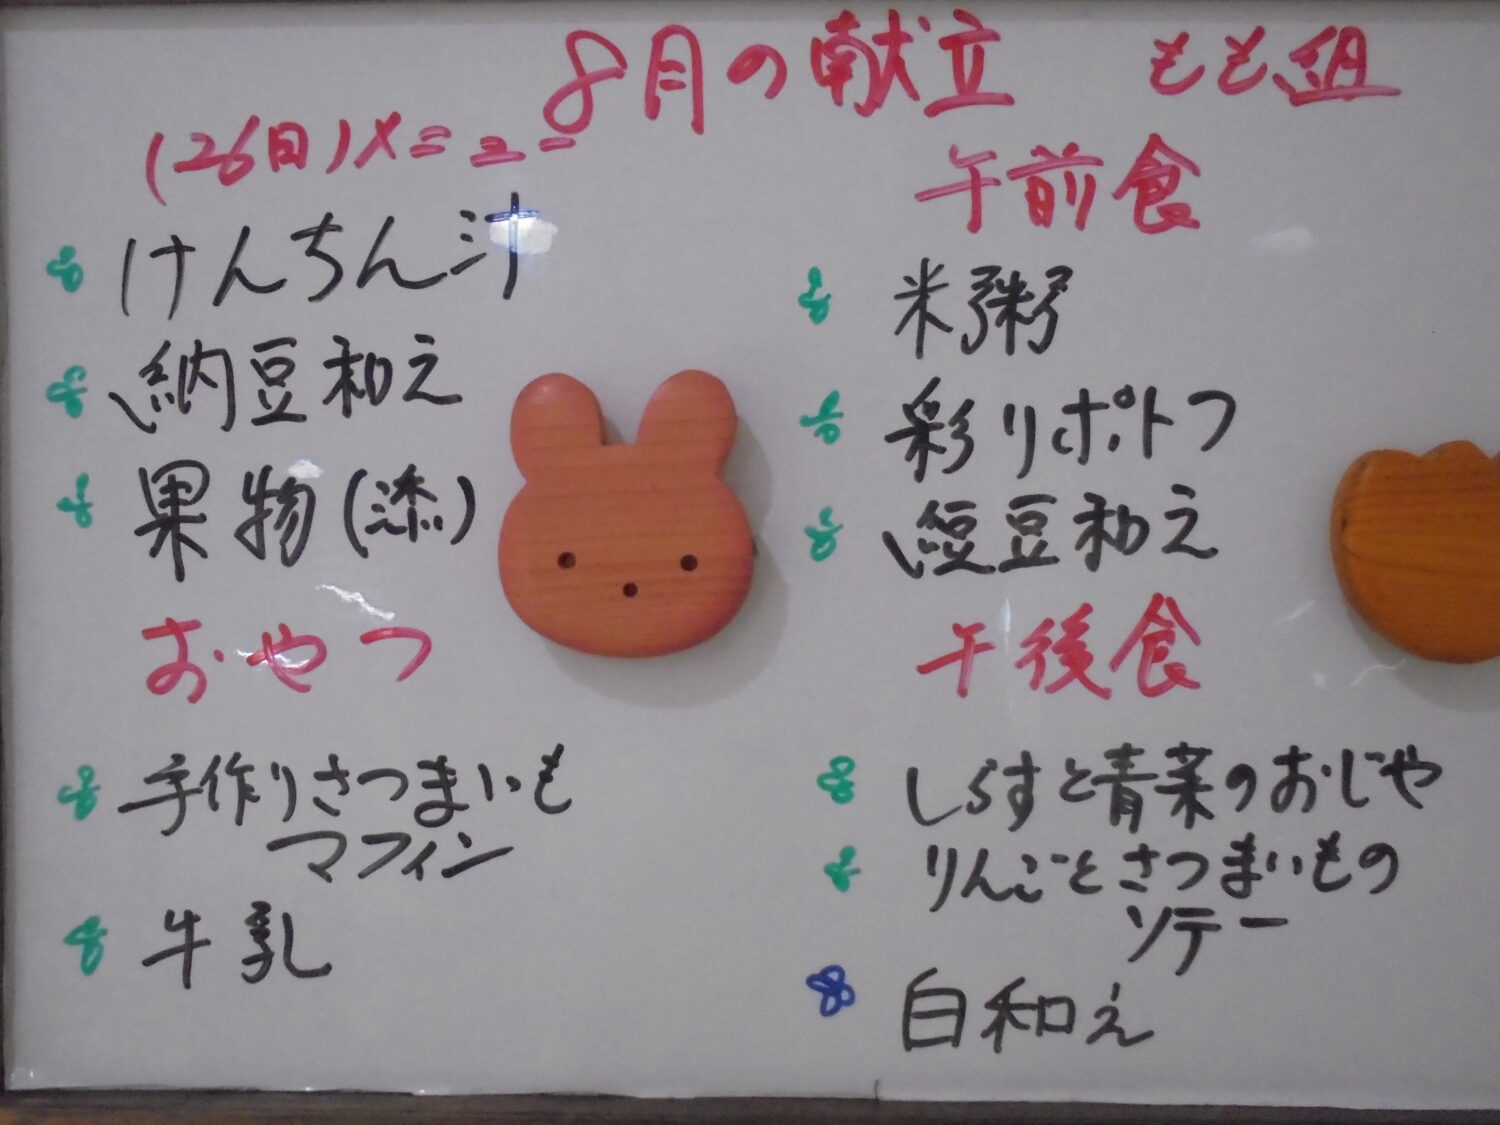 8月の献立 もも組
(26日)メニュー
けんちん汁
納豆和え
果物(漆)
おやつ
手作りさつまいも
マフィン
牛乳
午前食
米粥
彩りポトフ
納豆和え
午後食
しらすと青菜のおじや
りんごとさつまいもの
ソテー
白和え